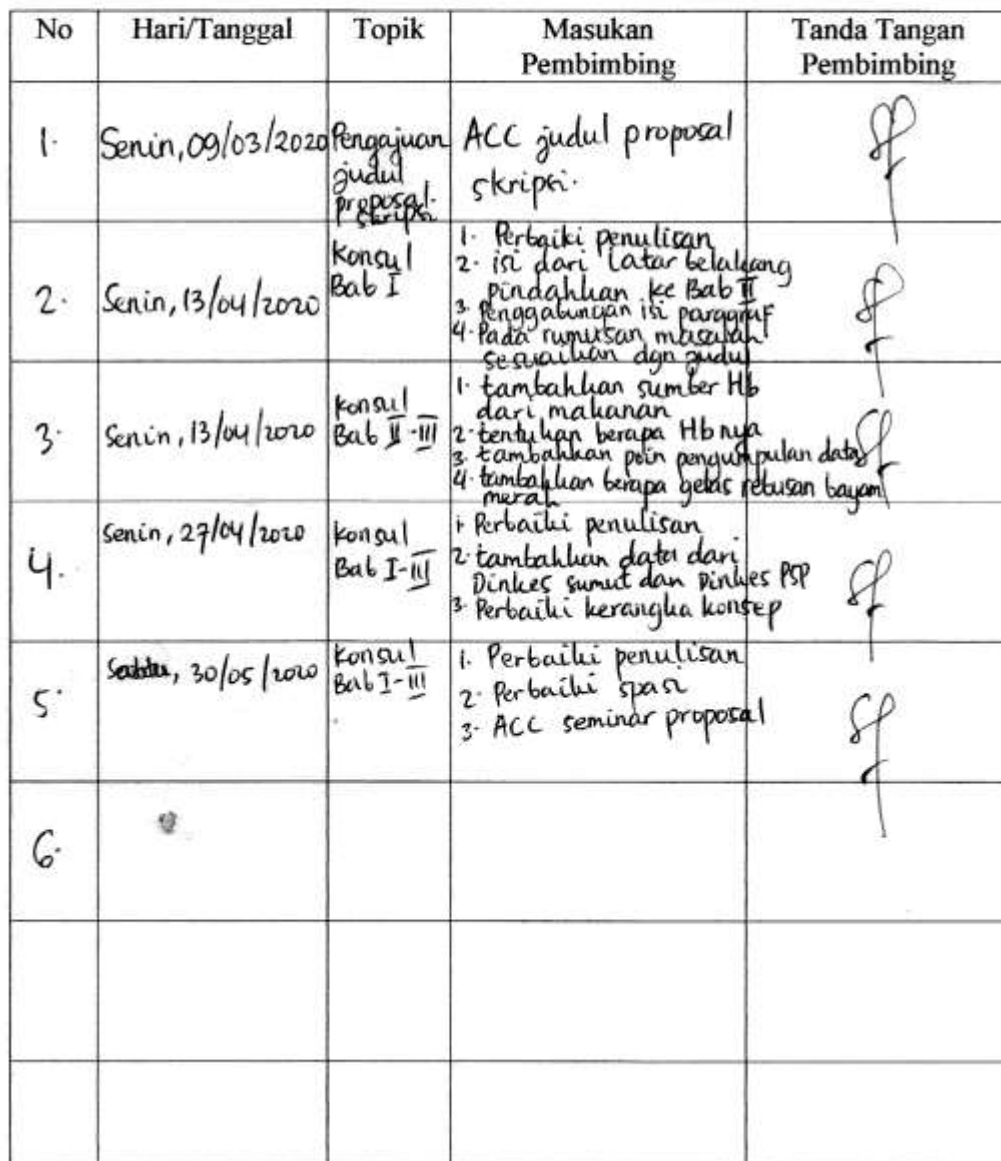 No Hari/Tanggal Topik Masukan Pembimbing Tanda Tangan Pembimbing
1. Senin, 09/03/2020 Pengajuan judul proposal skripsi ACC judul proposal skripsi.
2. Senin, 13/04/2020 Konsul Bab I
1. Perbaiki penulisan
2. isi dari Latar belakang
pindahkan ke Bab II
3. Penggabungan isi paragraf
4. Pada rumusan masalah
sesuaikan dgn judul
3. Senin, 13/04/2020 Konsul Bab II-III
1. tambahkan sumber Hb
dari makanan
2. tentukan berapa Hb nya
3. tambahkan poin pengumpulan data
4. tambahkan berapa gelas rebusan bayam
merah
4. Senin, 27/04/2020 Konsul Bab I-III
1. Perbaiki penulisan
2. tambahkan data dari
Dinkes sumut dan Dinkes PSP
3. Perbaiki kerangka konsep
5. Sabtu, 30/05/2020 Konsul Bab I-III
1. Perbaiki penulisan
2. Perbaiki spasi
3. ACC seminar proposal
6.